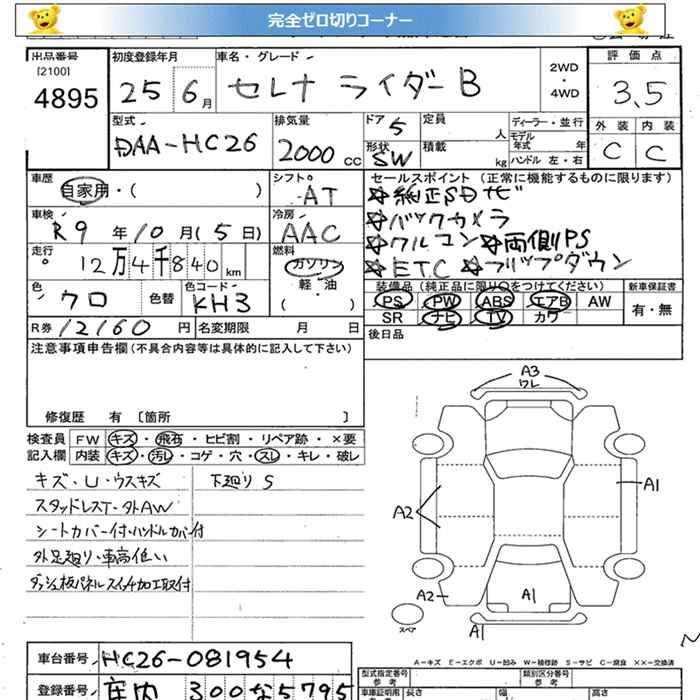 完全ゼロ切りコーナー
出品番号 初度登録年月 車名・グレード 評価点
[2100]
4895 25 6月 セレナ ライダーB 2WD・4WD 3.5
型式 排気量 ドア 5 定員 人 ディーラー・並行 外装 内装
DAA-HC26 2000cc 形状 SW 積載 kg モデル年式 年 ハンドル 左・右 C C
車歴 シフト セールスポイント (正常に機能するものに限ります)
自家用・( ) AT ☆純正SDナビ
車検 冷房 ☆バックカメラ
R9年10月(5日) AAC ☆クルコン☆両側PS
走行 燃料 ☆ETC ☆フリップダウン
12万4千840km ガソリン
軽・油
( )
色 クロ 色替 色コード KH3
装備品 (純正品に限り○をつけてください) 新車保証書
PS PW ABS エアB AW 有・無
SR ナビ TV カワ
R券 12160円 名変期限 月 日 後日品
注意事項申告欄(不具合内容等は具体的に記入して下さい)
修復歴 有 〔箇所 〕
検査員 FW キズ・飛石・ヒビ割・リペア跡・×要
記入欄 内装 キズ・汚れ・コゲ・穴・スレ・キレ・破レ
キズ・U・ウスキズ 下廻りS
スタッドレスT・外AW
シートカバー付・ハンドルカバー付
外足廻り・車高低い
ダッシュ板パネルスイッチ加工取付
A3
ワレ
A1
A2
A2
A1
A1
スペア
A-キズ E-エクボ U-凹み W-補修跡 S-サビ C-腐食 XX-交換済
車台番号 HC26-081954 型式指定番号 類別区分番号
参考 参考
登録番号 庄内 300な5795 車庫証明用 長さ 幅 高さ
参考